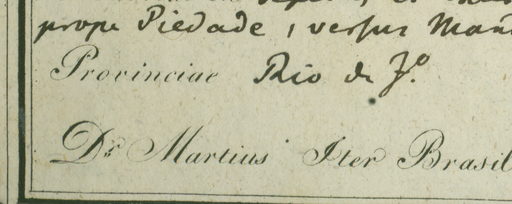 prope Piedade, versus
Provinciae Rio de J.º
Dr. Martius Iter Brasil